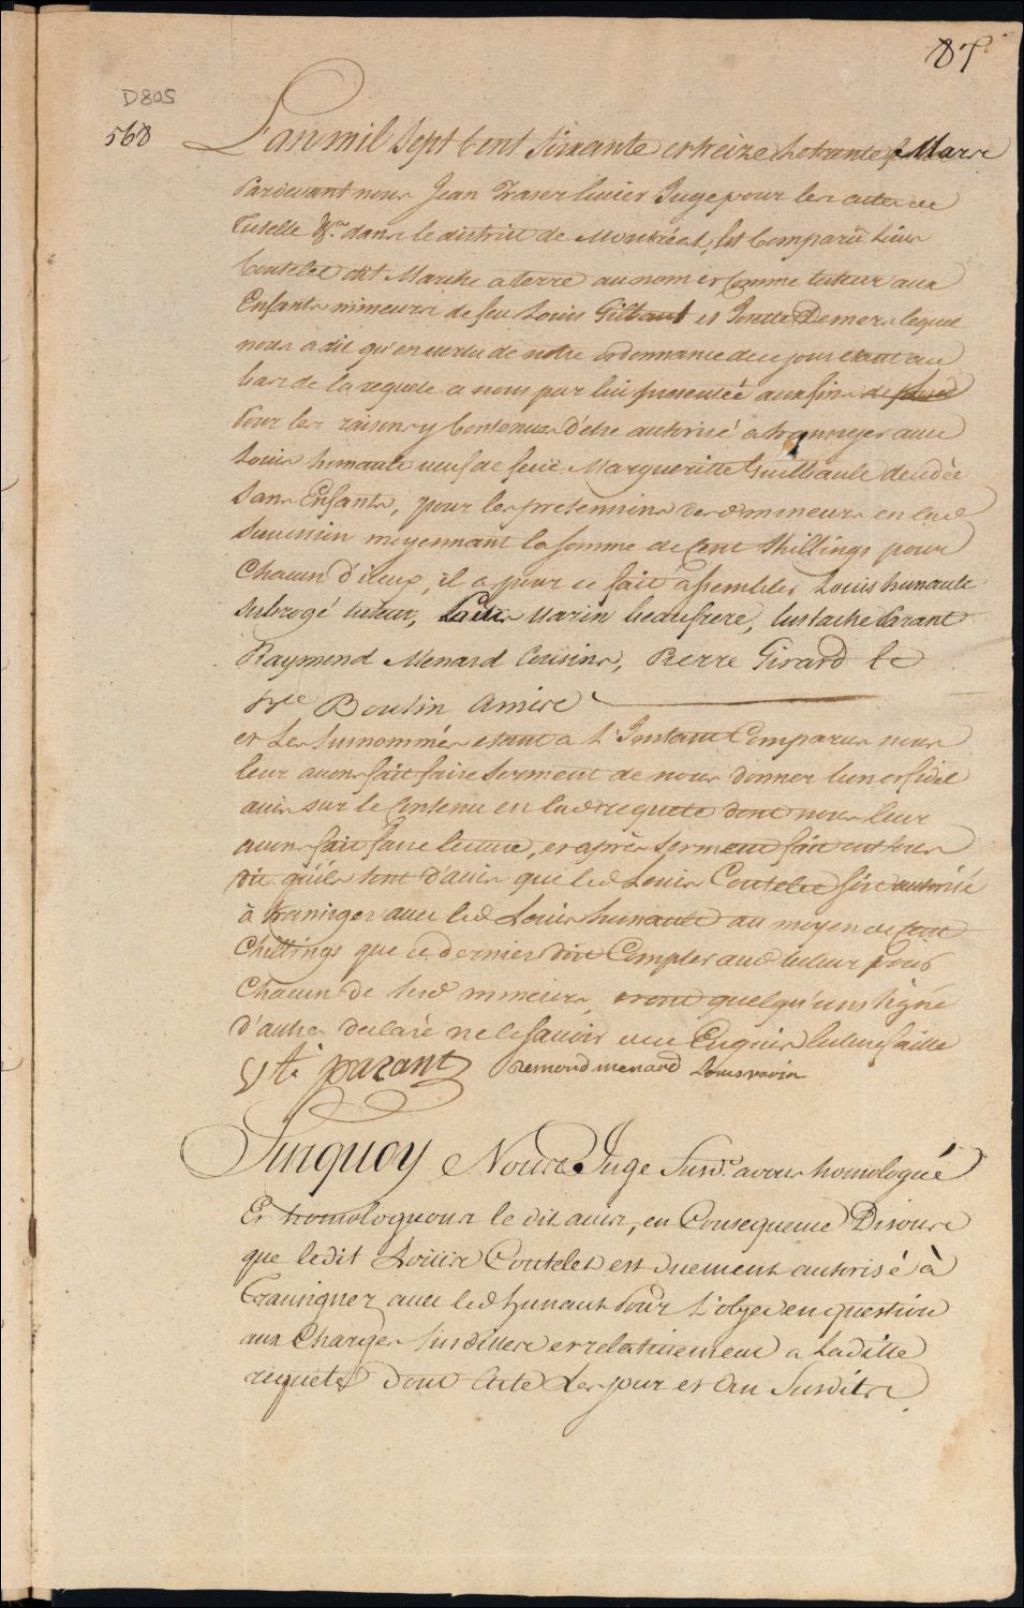 87
D805
568
L'an mil Sept Cent Soixante et treize le trente Mars
Pardevant nous Jean Fraser Ecuier Juge pour les actes de
Tutelle &ca. dans le district de Montréal, est Comparü Louis
Coutelet dit Marche a terre au nom et Comme tuteur aux
Enfants mineurs de feu Louis Gilbaut et Demers lequel
nous a dit qu'en vertu de notre ordonnance de ce jour etant au
bas de la requete a nous par lui presentée aux fins de
Pour les raisons y Contenues D'etre autorisé a transiger avec
Louis hunaulte veuf de feüe Margueritte Guilbaule decedée
Sans Enfants, pour les pretensions desd mineurs en lad
Succession moyennant la Somme de Cent Shillings pour
Chacun d'iceux, il a pour ce fait assembler Louis hunaulte
Subrogé tuteur, Louis Marin beaufrere, Eustache Parant
Raymond Menard Cousins, Pierre Girard &
Boutin Amis
et Les Susnommés etant a L'Instant Comparus nous
leur avons fait faire Serment de nous donner bon et fidel
avis sur le Contenu en lad requete dont nous leur
avons fait faire lecture, et après Serment fait ont tous
dit qu'ils sont d'avis que led Louis Coutelet soit autorisé
à transiger avec led Louis hunaulte au moyen de Cent
Chillings que ce dernier doit Compter aud tuteur pour
Chacun de sesd mineurs, et ont quelqu'uns Signé
d'autres declaré ne le savoir de ce Enquis lecture faitte
parant remond menard Louis
Surquoy Nous Juge Susd. avons homologué
Et homologuons le dit avis, en Consequence Disons
que ledit Louis Coutelet est duement autorisé à
Transiger avec led hunault Pour L'objet en question
aux Charges Susdittes et relativement a Laditte
requete Dont Acte Les jour et An Susdits